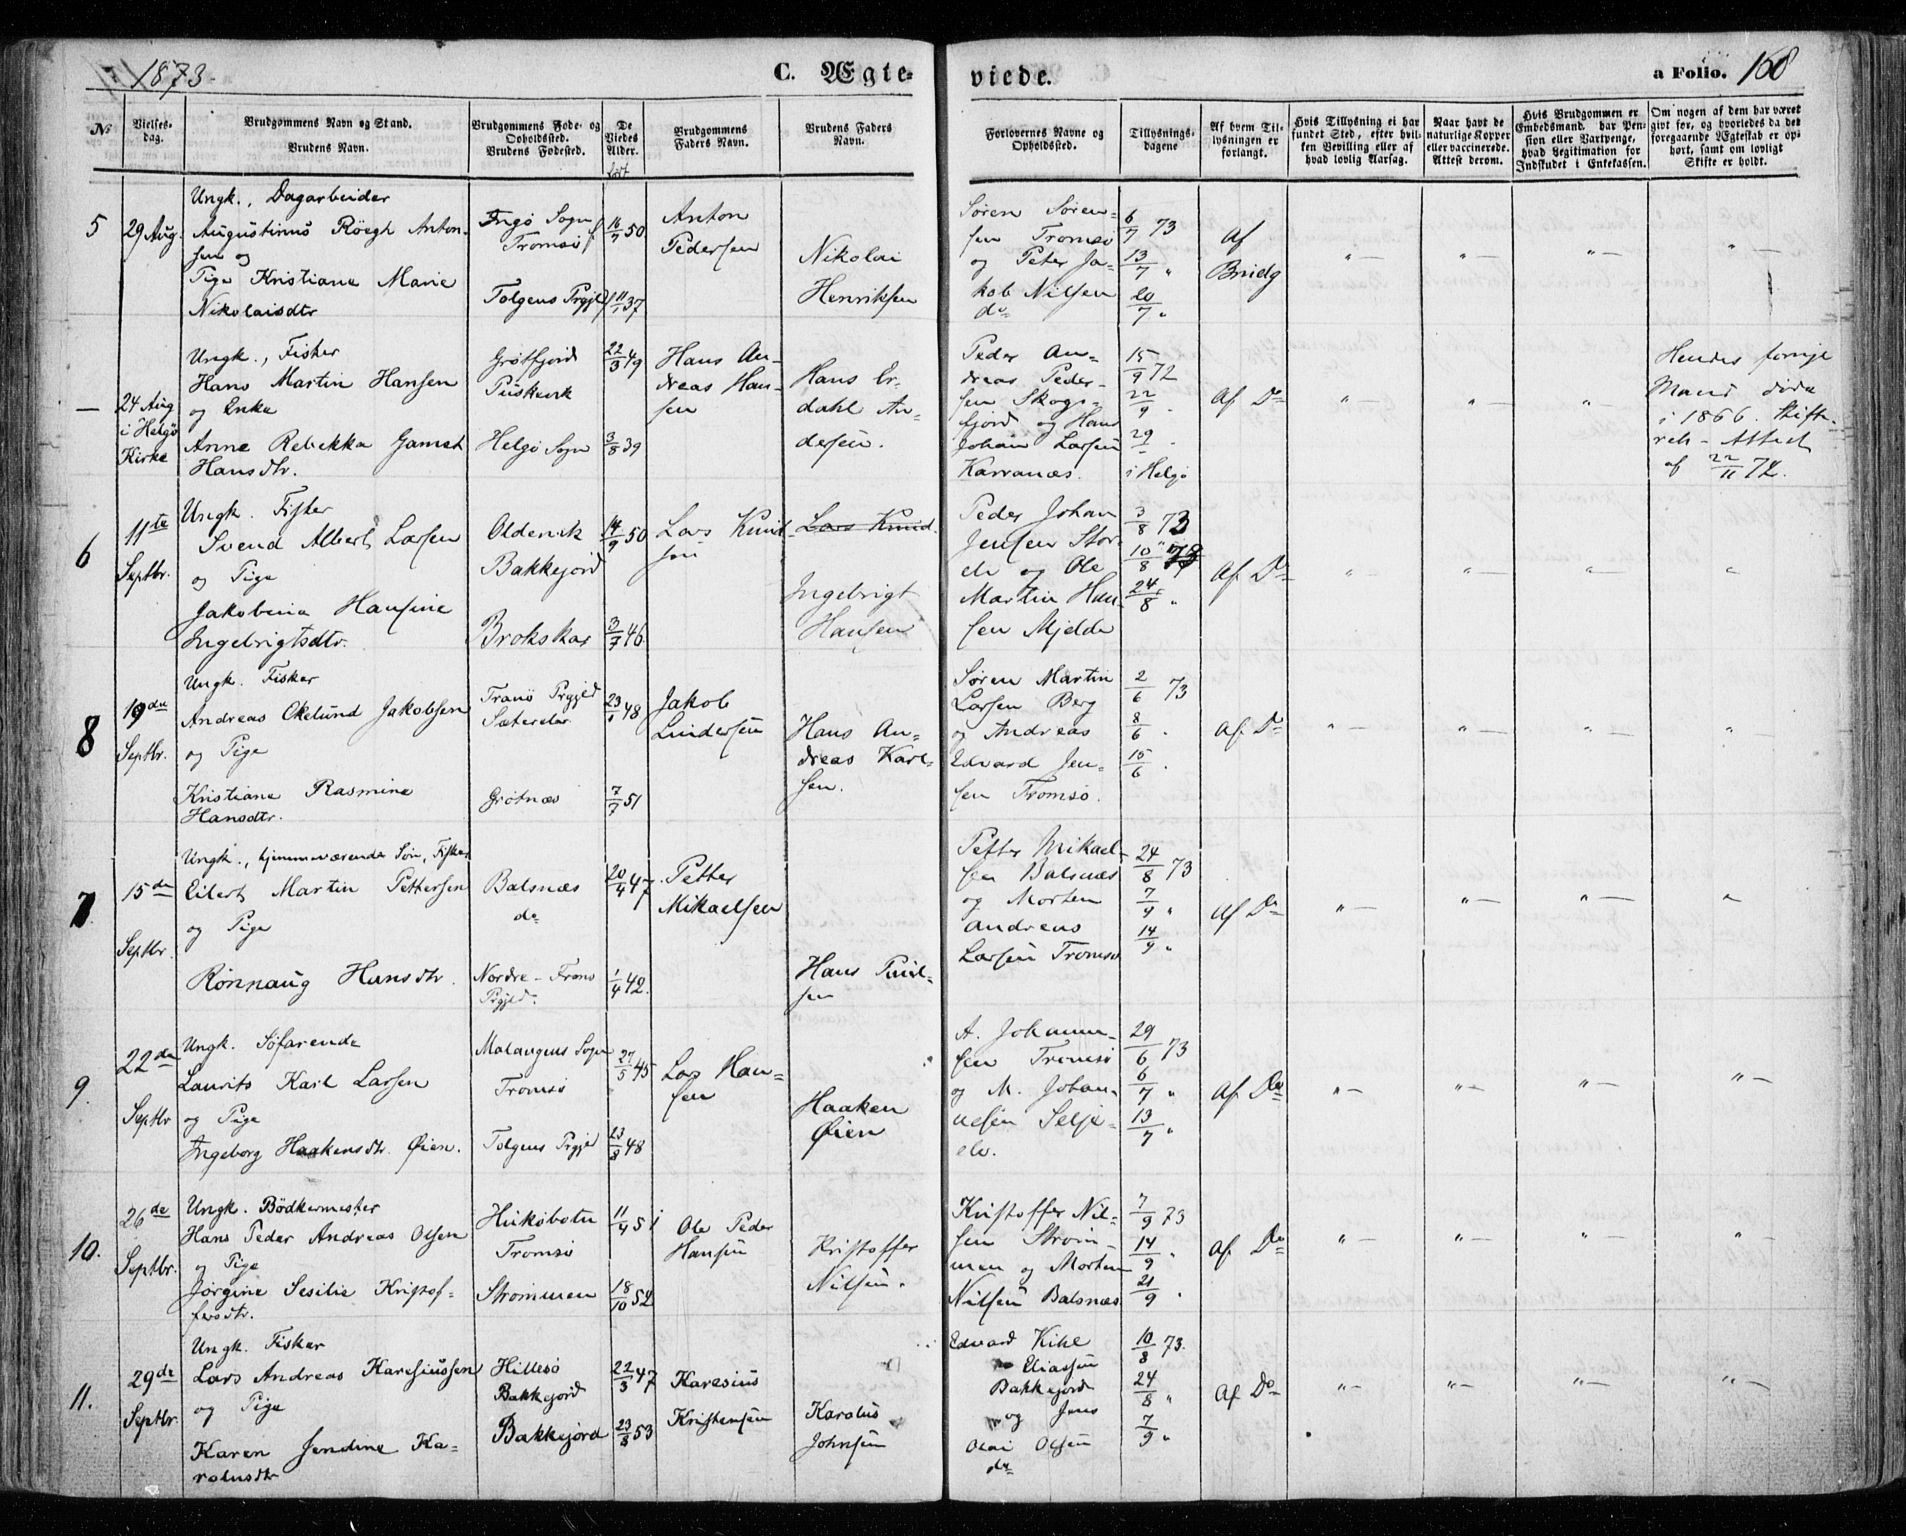 1873.
C. Ægte-
viede.
a Folio. 168
No
Vielses-
dag.
Brudgommens Navn og Stand.
Brudens Navn.
Brudgommens Føde- og
Opholdssted.
Brudens Fødested.
De
Viedes
Alder.
født
Brudgommens
Faders Navn.
Brudens Faders
Navn.
Forlovernes Navne og
Opholdssted.
Tillysnings-
dagene
Af hvem Til-
lysningen er
forlangt.
Hvis Tillysning ei har
fundet Sted, efter hvil-
ken Bevilling eller af
hvad lovlig Aarsag.
Naar havt de
naturlige Kopper
eller vaccinerede.
Attest derom.
Hvis Brudgommen er
Embedsmand, har Pen-
sion eller Vartpenge,
hvad Legitimation for
Indskudet i Enkekassen.
Om nogen af dem har været
givt før, og hvorledes da det
foregaaende Ægteskab er op-
hørt, samt om lovligt
Skifte er holdt.
5
29 Aug.
Ungk., Dagarbeider
Augustinus Röegh Anton-
sen og
Pige Kristiane Marie
Nikolaisdtr
Ingö Sogn
Tromsö
Tolgens Prgjld
16/7 50
11/1 37
Anton
Pedersen
Nikolai
Henriksen
Sören Sören-
sen Tromsö
og Peter Ja-
kob Nilsen
do
6/7 73
13/7 "
20/7 "
Af
Brudg
—
24 Aug
i Helgö
Kirke
Ungk., Fisker
Hans Martin Hansen
og Enke
Anne Rebekka Gamst
Hansdtr.
Grötfjord
Helgö Sogn
22/3 49
3/8 39
Hans An-
dreas Han-
sen
Hans Er-
dahl An-
dersen.
Peder An-
dreas Peder-
sen Skogs-
fjord og Hans
Johan Larsen
Karvanæs.
15/9 72
22/9 .
29/ .
i Helgö
Af Do
Hendes forrige
Mand döde
i 1866. Skifte-
rets-Attest
af 22/11 72.
6
11te
Septbr.
Ungk. Fisker
Svend Albert Larsen
og Pige
Jakobina Hansine
Ingebrigtsdtr.
Oldervik
Bakkejord
Brokskar
14/9 50
3/7 46
Lars Knud-
sen
Lars Knud.
Ingebrigt
Hansen
Peder Johan
Jensen Stor-
elv og Ole
Martin Han-
sen Mjelde
3/8 73
10/8 73
24/8 "
Af Do
8
19de
Septbr.
Ungk. Fisker
Andreas Okelund Jakobsen
og Pige
Kristiane Rasmine
Hansdtr.
Tranö Prgjld
Sæterelv
Grötnæs
23/1 48
7/7 51
Jakob
Lindersen
Hans An-
dreas Karl-
sen.
Sören Martin
Larsen Berg
og Andreas
Edvard Jen-
sen Tromsö.
2/6 73
8/6 .
15/6 .
Af Do
7.
15de
Septbr.
Ungk., hjemmeværende Sön, Fisker
Eilert Martin Pettersen
og Pige
Rönnaug Hansdtr.
Balsnæs
do
Nordre-Frons
Prgjld.
20/4 47
1/4 42.
Petter
Mikaelsen
Hans Poul-
sen
Petter Mikael-
sen Balsnæs
og Morten
Andreas
Larsen Tromsö
24/8 73
7/9 "
14/9 "
Af Do
9.
22de
Septbr
Ungk. Söfarende
Laurits Karl Larsen
og Pige
Ingeborg Haakensdtr. Öien.
Malangens Sogn
Tromsö
Tolgens Prgjld
27/5 45
23/8 48
Lars Han-
sen
Haaken
Öien
A. Johann-
sen Tromsö
og M. Johan-
nesen Selje-
elv.
29/6 73
6/7 "
13/7 "
Af Do
10.
26de
Septbr.
Ungk. Bödkermester
Hans Peder Andreas Olsen
og Pige
Jörgine Sesilie Kristof-
fersdtr.
Hiköbotn
Tromsö
Strömmen
11/4 51
18/10 52
Ole Peder
Hansen
Kristoffer
Nilsen.
Kristoffer Nil-
sen Ström-
men og Morten
Nilsen Balsnæs
7/9 73
14/9 "
21/9 .
Af Do
11.
29de
Septbr.
Ungk. Fisker
Lars Andreas Karesiussen
og Pige
Karen Jendine Ka-
rolusdtr
Hillesö
Bakkejord
Bakkejord
22/3 47
23/8 53
Karesius
Kristensen
Karolus
Johnsen
Edvard Kihl
Eliassen
Bakkejord
og Jens
Olai Olsen
do
10/8 73.
24/8 "
7/9 "
Af Do